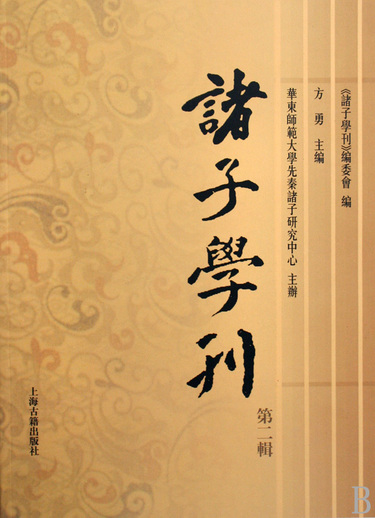 《諸子學刊》編委會 編
方勇 主編
華東師範大學先秦諸子研究中心 主辦
諸子學刊
第二輯
上海古籍出版社
B